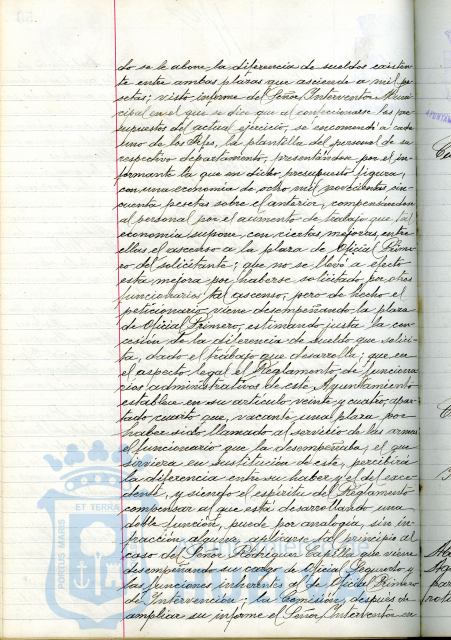 do se le abone la diferencia de sueldos existen-
te entre ambas plazas que asciende a mil pe-
setas; visto informe del Señor Interventor Muni-
cipal en el que se dice que al confeccionarse los pre-
supuestos del actual ejercicio, se encomendó a cada
uno de los Jefes, la plantilla del personal de su
respectivo departamento, presentándose por el in-
formante la que en dicho presupuesto figura,
con una economía de ocho mil novecientas cin-
cuenta pesetas sobre el anterior, compensándose
al personal por el aumento de trabajo que tal
economía supone, con ciertas mejoras, entre
ellas el ascenso a la plaza de Oficial Prime-
ro del solicitante; que no se llevó a efecto
esta mejora por haberse solicitado por otros
funcionarios tal ascenso, pero de hecho el
peticionario viene desempeñando la plaza
de Oficial Primero, estimando justa la con-
cesión de la diferencia de sueldo que solici-
ta, dado el trabajo que desarrolla; que en
el aspecto legal el Reglamento de funciona-
rios administrativos de este Ayuntamiento
establece en su artículo veinte y cuatro, apar-
tado cuarto que, vacante una plaza por
haber sido llamado al servicio de las armas
el funcionario que la desempeñaba, el que
sirviera en sustitución de este, percibirá
la diferencia entre su haber y el del exce-
dente, y siendo el espíritu del Reglamento
compensar al que está desarrollando una
doble función, puede por analogía, sin in-
fracción alguna, aplicarse tal principio al
caso del Señor Capilla que viene
desempeñando su cargo de Oficial Segundo y
las funciones inherentes al de Oficial Primero
de Intervención; la Comisión, después de
ampliar su informe el Señor Interventor en
PORTUS MARIS ET TERRA